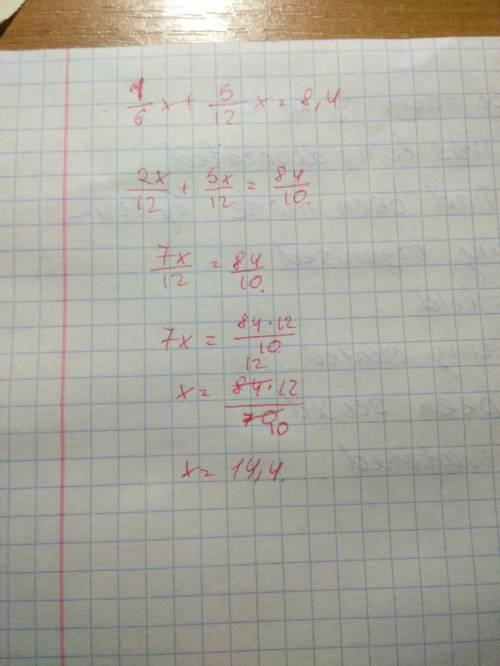 1/6 x + 5/12 x = 8,4.
2x/12 + 5x/12 = 84/10.
7x/12 = 84/10.
7x = 84·12/10
x = 12 84·12/70 10
x = 14,4.